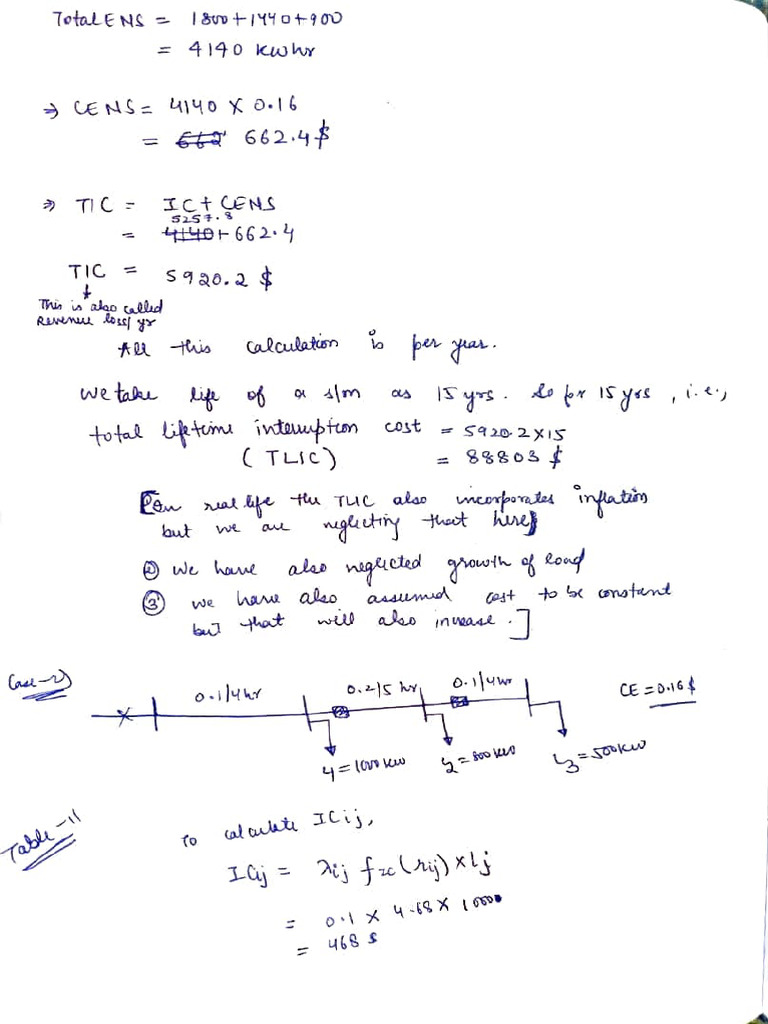 Total ENS = 1800+1440+900
= 4140 kwhr
⇒ CENS = 4140 X 0.16
= 662 662.4$
⇒ TIC = IC + CENS
5257.8
= 4140+662.4
TIC = 5920.2 $
↓
This is also called
Revenue loss/yr
All this calculation is per year.
we take life of a s/m as 15 yrs. So for 15 yrs, i.e.,
total lifetime interruption cost = 5920.2X15
(TLIC) = 88803 $
[① In real life the TLIC also incorporates inflation
but we are neglecting that here
② We have also neglected growth of load
③ we have also assumed cost to be constant
but that will also increase.]
Case-2)
0.1/4hr 0.2/5 hr 0.1/4hr CE=0.16$
L1=1000 kW L2=800 kW L3=500kW
Table-11
To calculate ICij,
ICij = λij fzc(rij) X Lj
= 0.1 X 4.68 X 1000
= 468 $